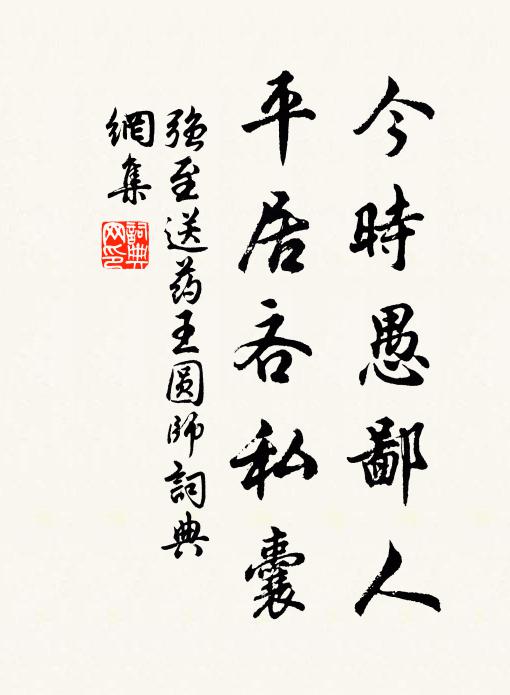 今時愚鄙人
平居吝私囊
强至送药王圆師詞典
網集
詞典
网印